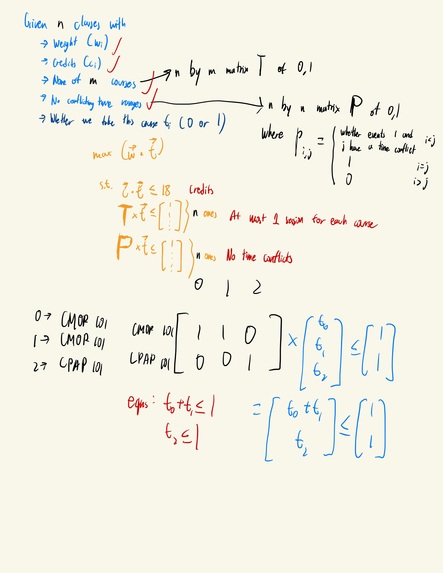 Given n classes with
→ Weight (wᵢ) ✓
→ Credits (cᵢ) ✓
→ None of m courses ✓ → n by m matrix T of 0,1
→ No conflicting time ranges ✓ → n by n matrix P of 0,1
→ Whether we take this course tᵢ (0 or 1)
where P_{i,j} = { whether events i and j have a time conflict i<j
1 i=j
0 i>j
max (w⃗ · t⃗)
s.t. c⃗ · t⃗ ≤ 18 credits
T × t⃗ ≤ [1 ⋮ 1] } n ones At most 1 session for each course
P × t⃗ ≤ [1 ⋮ 1] } n ones No time conflicts
0 1 2
0 → CMOR 101
1 → CMOR 101
2 → CPAP 101
CMOR 101 [1 1 0
CPAP 101 0 0 1] × [t₀ t₁ t₂] ≤ [1 1]
eqns: t₀ + t₁ ≤ 1
t₂ ≤ 1
= [t₀ + t₁
t₂] ≤ [1 1]